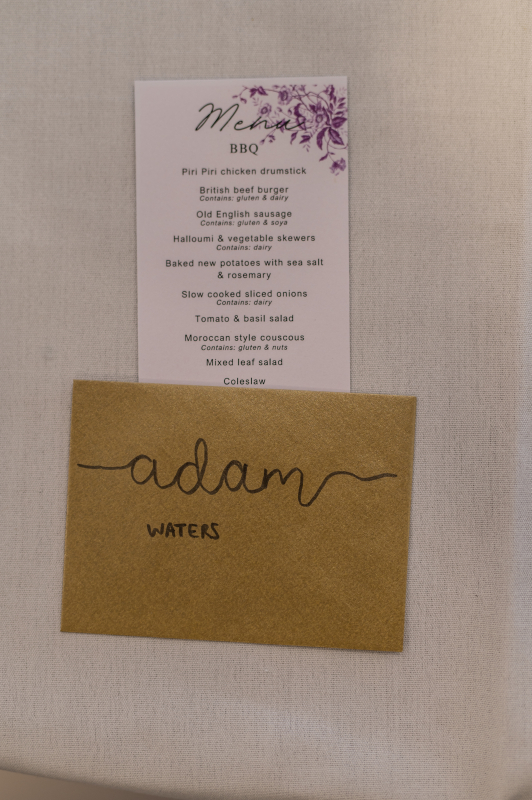 Menu
BBQ
Piri Piri chicken drumstick
British beef burger
Contains: gluten & dairy
Old English sausage
Contains: gluten & soya
Halloumi & vegetable skewers
Contains: dairy
Baked new potatoes with sea salt
& rosemary
Slow cooked sliced onions
Contains: dairy
Tomato & basil salad
Moroccan style couscous
Contains: gluten & nuts
Mixed leaf salad
Coleslaw
adam
WATERS